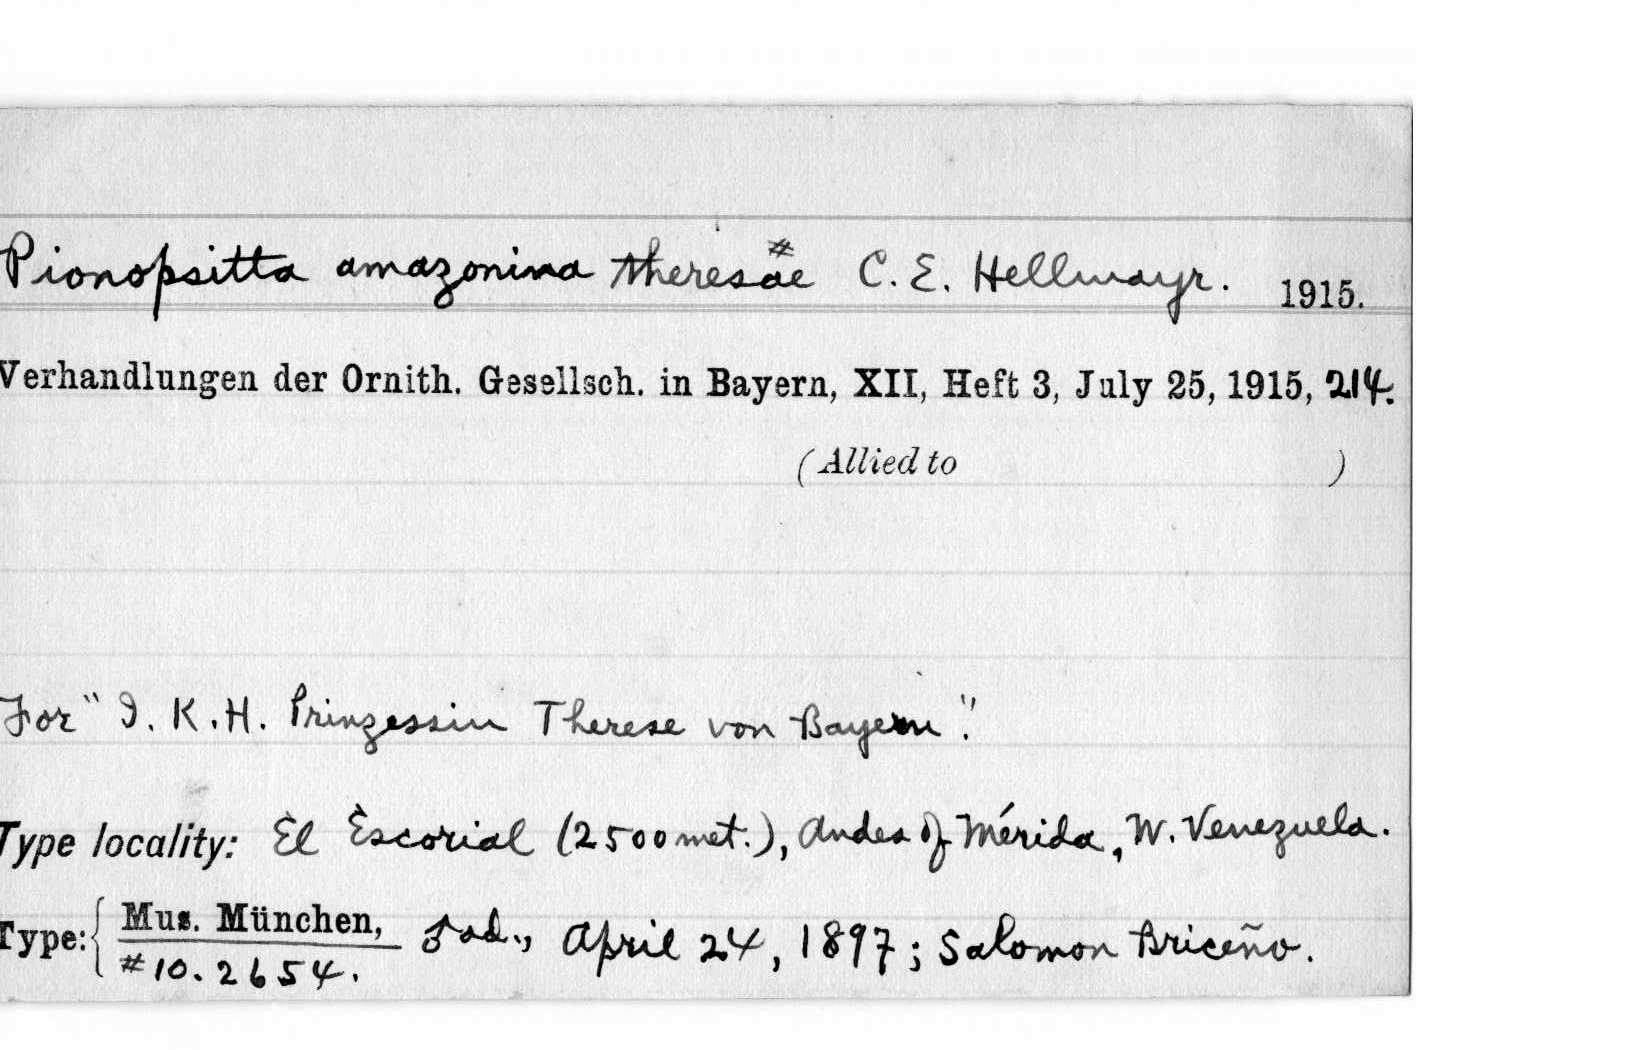 Pionopsitta amazonina theresae # C. E. Hellmayr. 1915.
Verhandlungen der Ornith. Gesellsch. in Bayern, XII, Heft 3, July 25, 1915, 214.
(Allied to )
For "I. K. H. Prinzessin Therese von Bayern".
Type locality: El Escorial (2500 met.), Andes of Mérida, W. Venezuela.
Type: { Mus. München, ♂ ad., April 24, 1897; Salomon Briceño.
#10.2654.